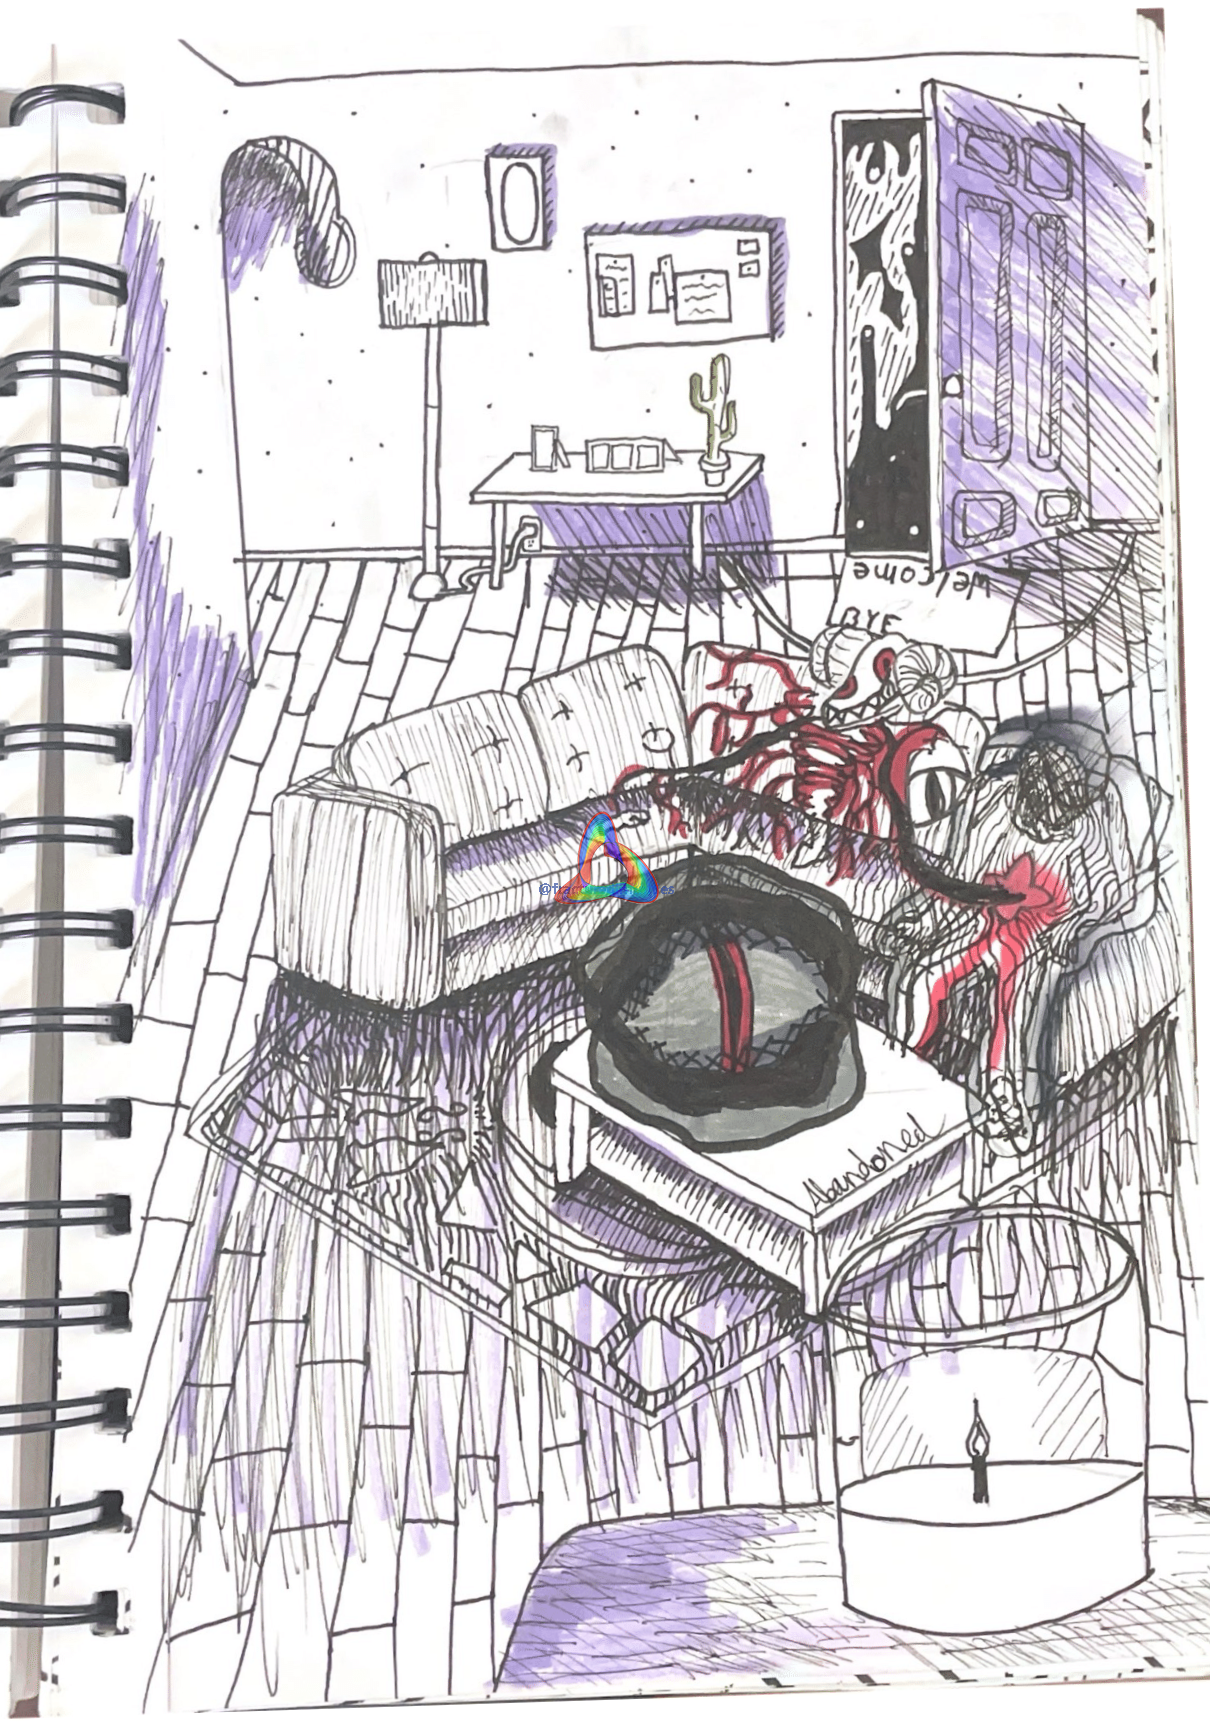 welcome
BYE
Abandoned